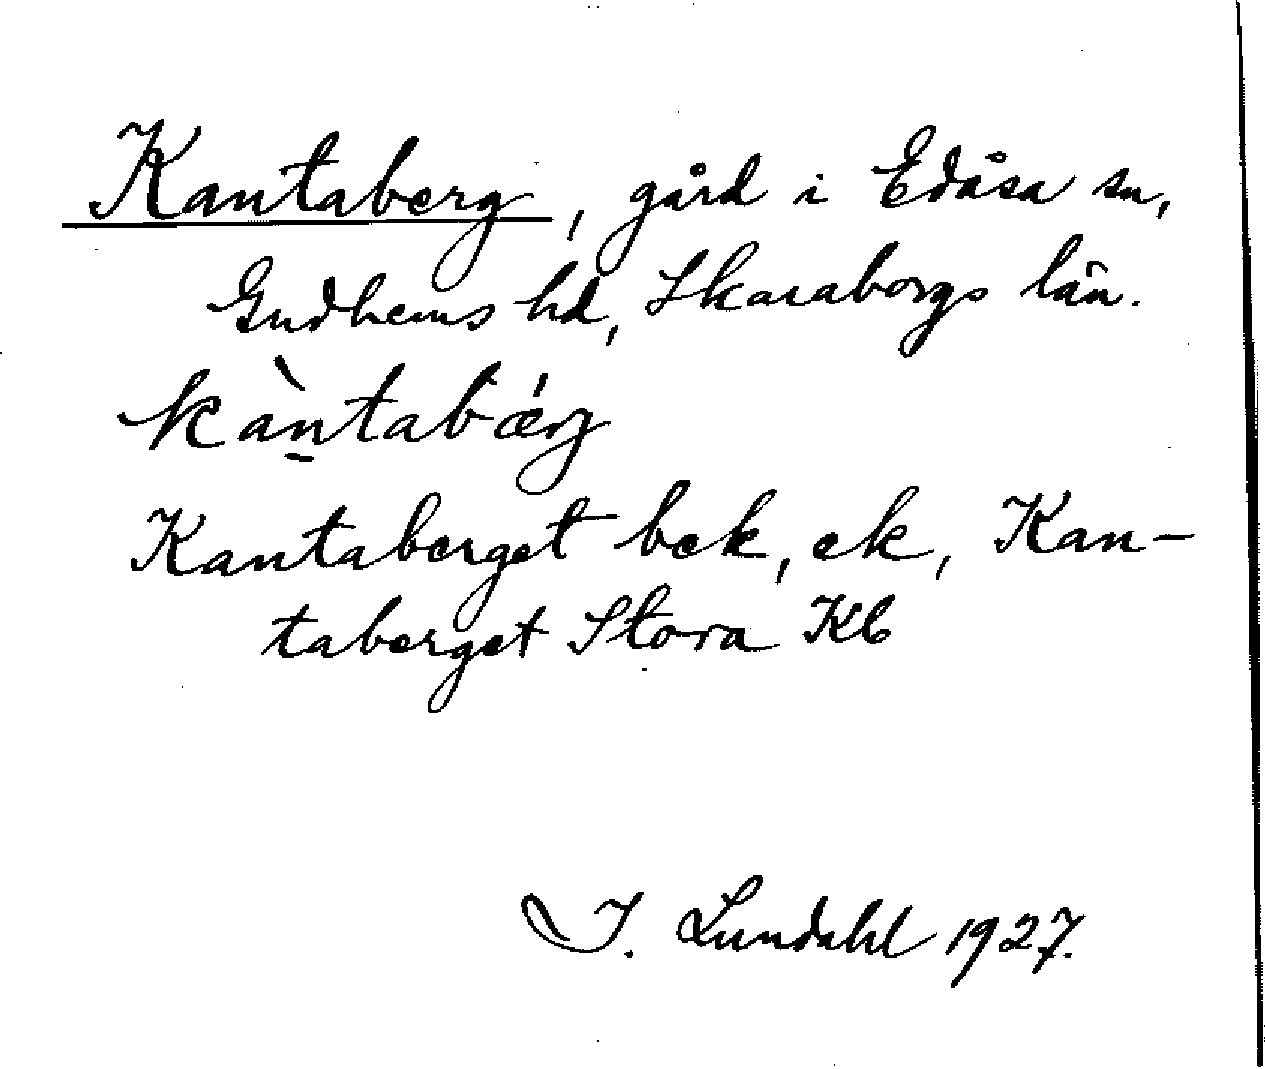 Kantaberg, gård i Edåsa sn,
Gudhems hd, Skaraborgs län.
kàn̠tabǽrg
Kantaberget bek, ek, Kan-
taberget Stora Kb
I. Lundahl 1927.